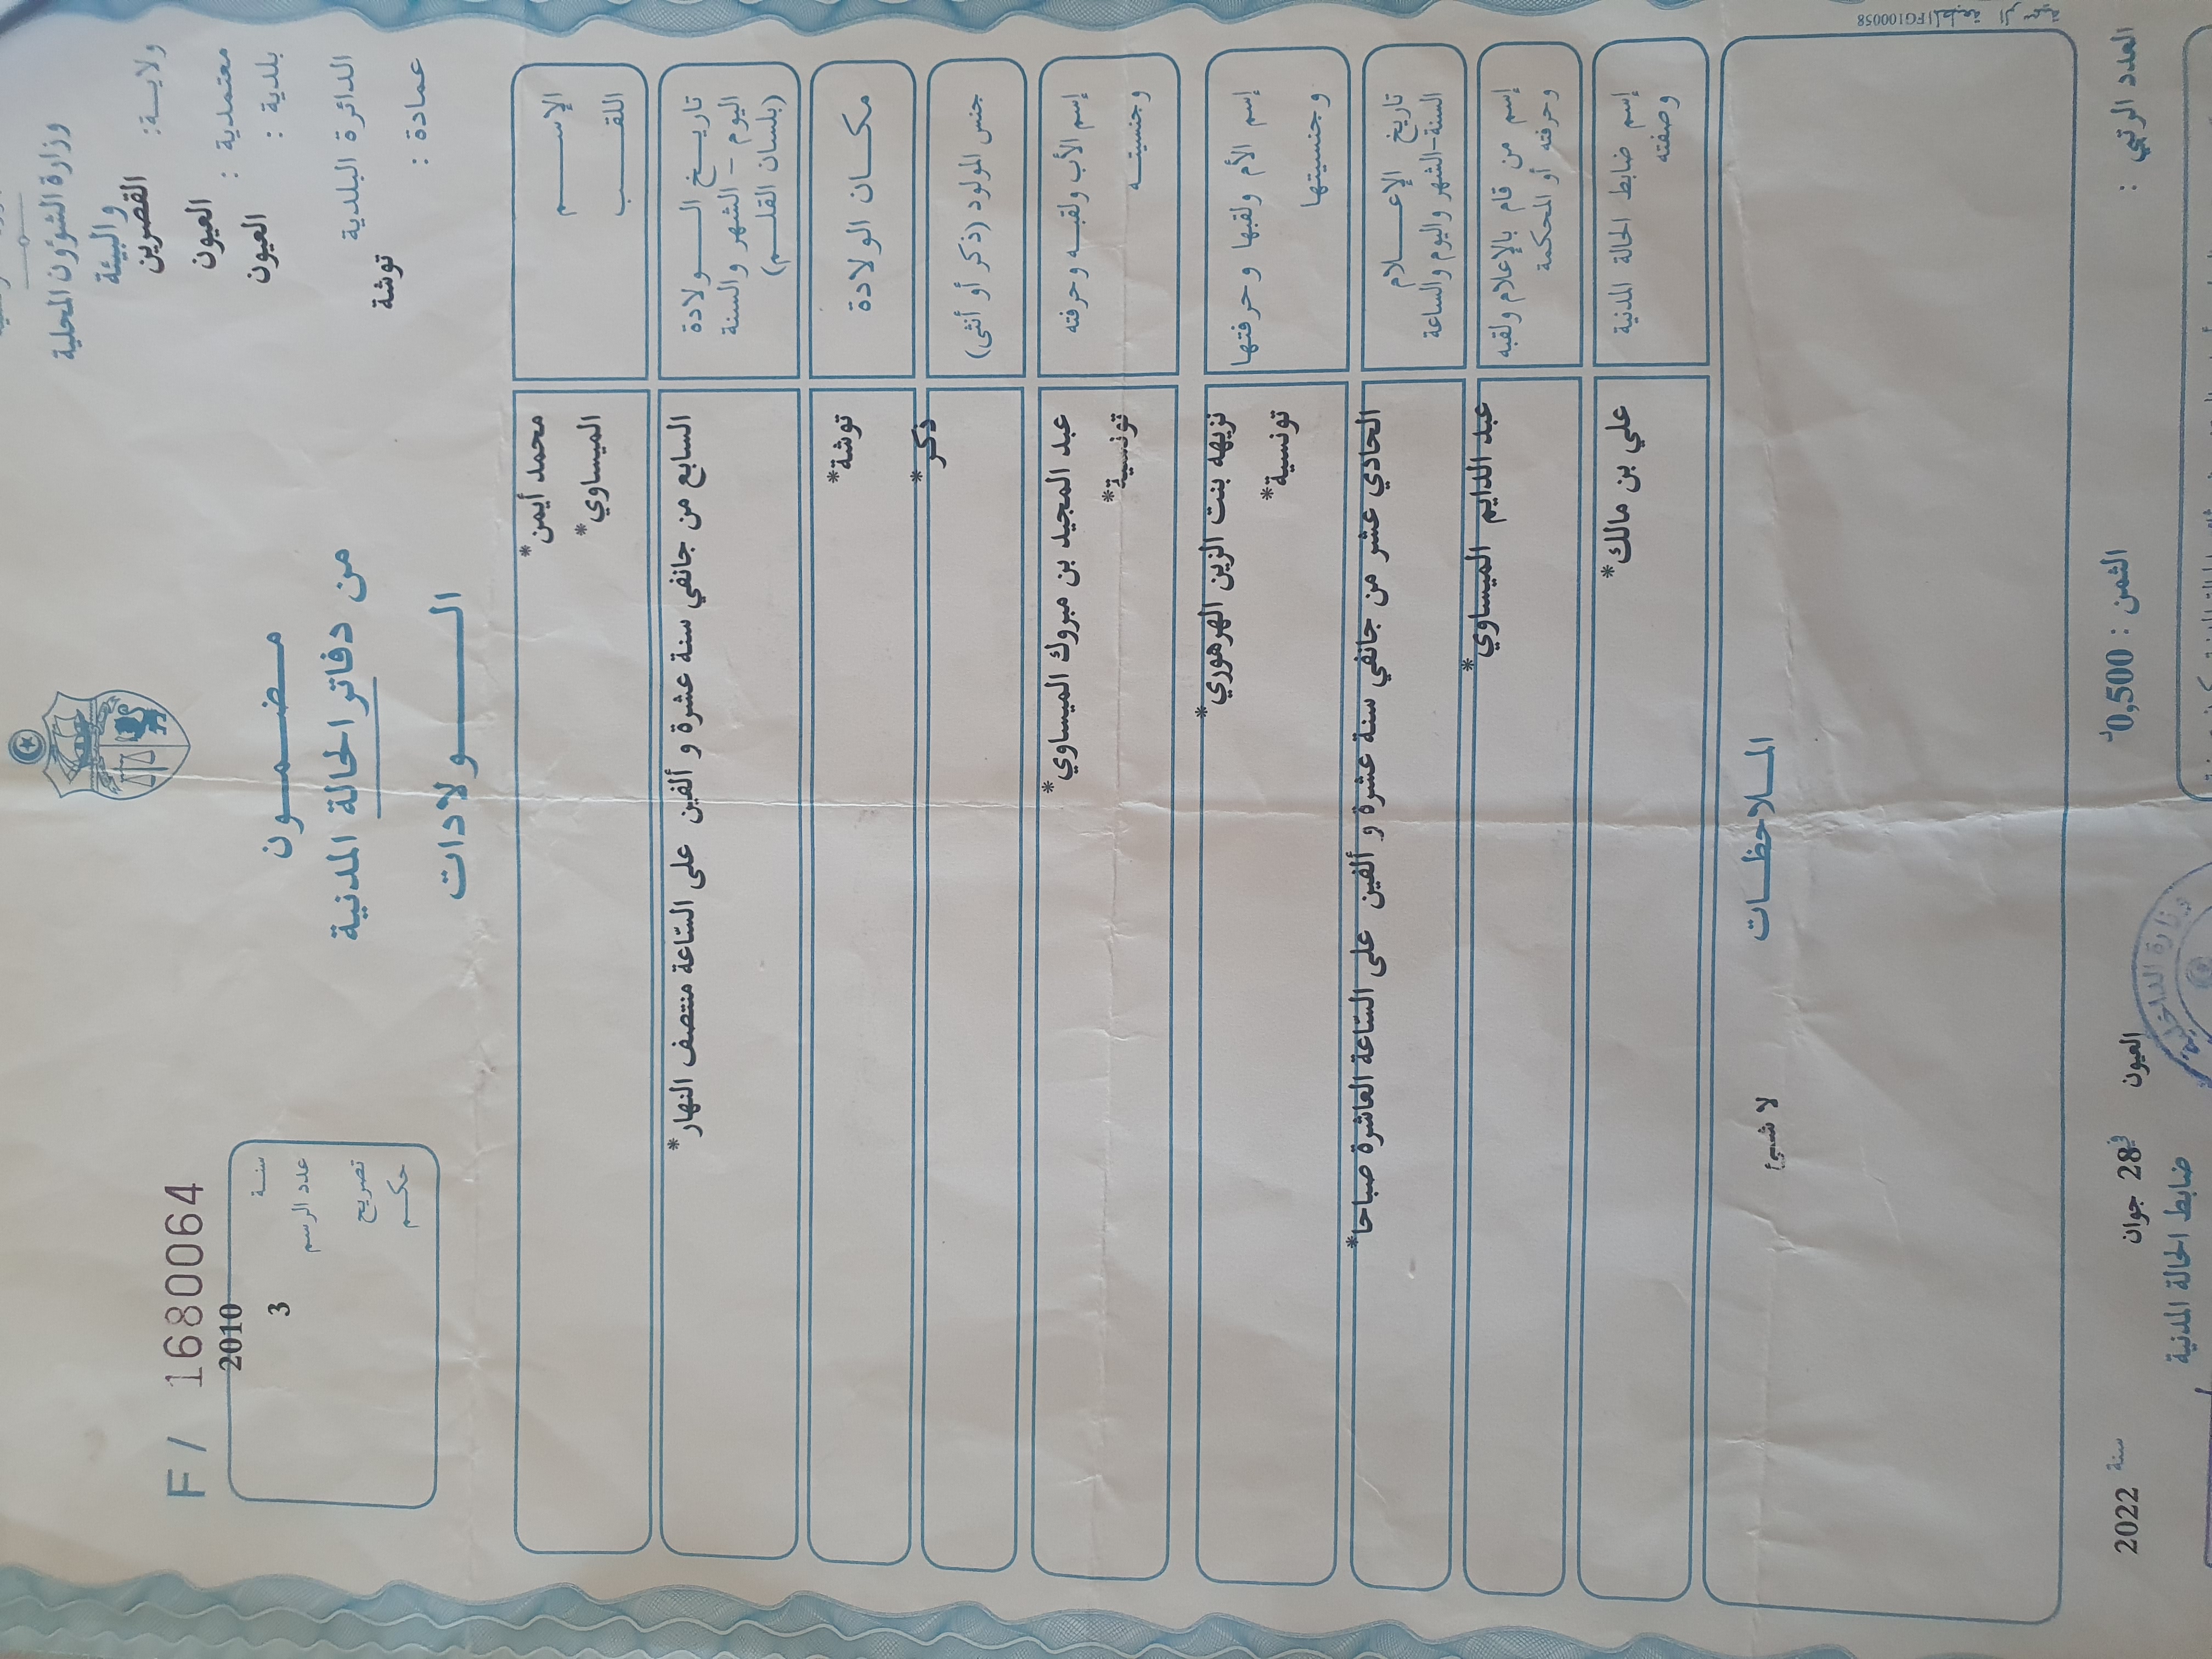 وزارة الشؤون المحلية
والبيئة
ولايــة: القصرين
معتمدية : العيون
بلدية : العيون
الدائرة البلدية
عمادة : توشة
مـضـمـون
من دفاتر الحالة المدنية
الـولادات
F / 1680064
سنـة 2010
عدد الرسم 3
تصريح
حكـم
الإسـم محمد أيمن*
اللقـب الميساوي*
تاريـخ الـولادة السابع من جانفي سنة عشرة و ألفين على السّاعة منتصف النهار*
اليوم - الشهر والسنة
(بلسان القلـم)
مكـان الولادة توشة*
جنس المولود (ذكر أو أنثى) ذكر*
إسم الأب ولقبـه وحرفته عبد المجيد بن مبروك الميساوي*
وجنسيتـه تونسية*
إسم الأم ولقبها وحرفتها نزيهه بنت الزين الهرهوري*
وجنسيتها تونسية*
تاريخ الإعـلام الحادي عشر من جانفي سنة عشرة و ألفين على السّاعة العاشرة صباحا*
السنة-الشهر واليوم والساعة
إسم من قام بالإعلام ولقبه عبد الدايم الميساوي*
وحرفته أو المحكمة
إسم ضابط الحالة المدنية علي بن مالك*
وصفته
المـلاحظـات
لا شيئ
العدد الرتبي :
الثمن : 0,500د
العيون في 28 جوان سنة 2022
ضابط الحالة المدنية
وزارة الداخلية